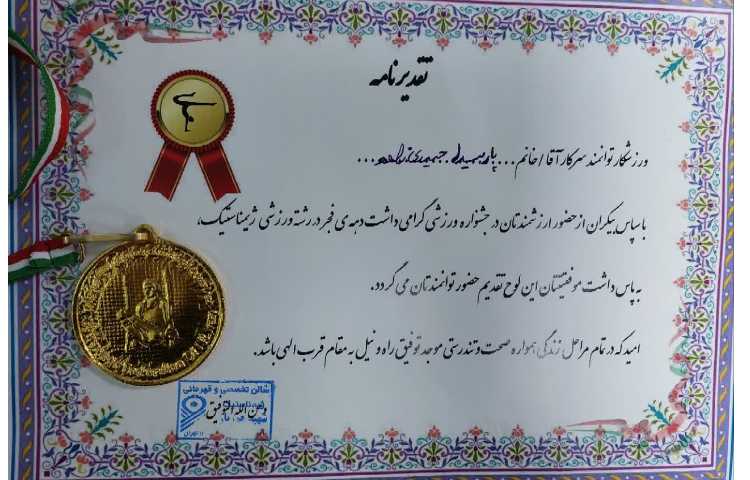 تقدیرنامه
ورزشکار توانمند سرکار آقا / خانم ... پارمیدا ...
با سپاس بیکران از حضور ارزشمندتان در جشنواره ورزشی گرامی داشت دهه ی فجر در رشته ورزشی ژیمناستیک،
به پاس داشت موفقیتتان این لوح تقدیم حضور توانمندتان می گردد.
امید که در تمام مراحل زندگی همواره صحت و تندرستی موجد توفیق راه و نیل به مقام قرب الهی باشد.
و من الله التوفیق
سالن تخصصی و قهرمانی